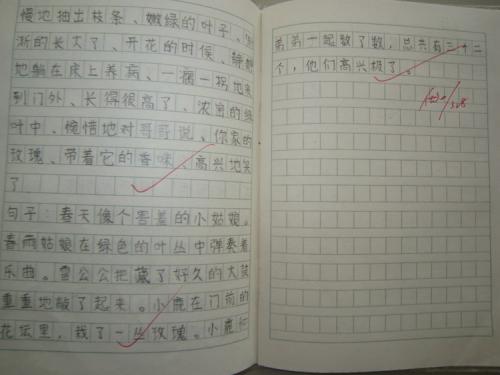 慢地抽出枝条、嫩绿的叶子、
渐的长大了、开花的时候、静静
地躺在床上养病、一瘸一拐地来
到门外、长得很高了、浓密的绿
叶中、惋惜地对哥哥说、你家的
玫瑰、带着它的香味、高兴地笑
了
句子：春天像个害羞的小姑娘。
春雨姑娘在绿色的叶丛中弹奏着
乐曲。雷公公把藏了好久的大鼓
重重地敲了起来。小鹿在门前的
花坛里，栽了一丛玫瑰。小鹿和
弟弟一起数了数，总共有三十二
个，他们高兴极了。